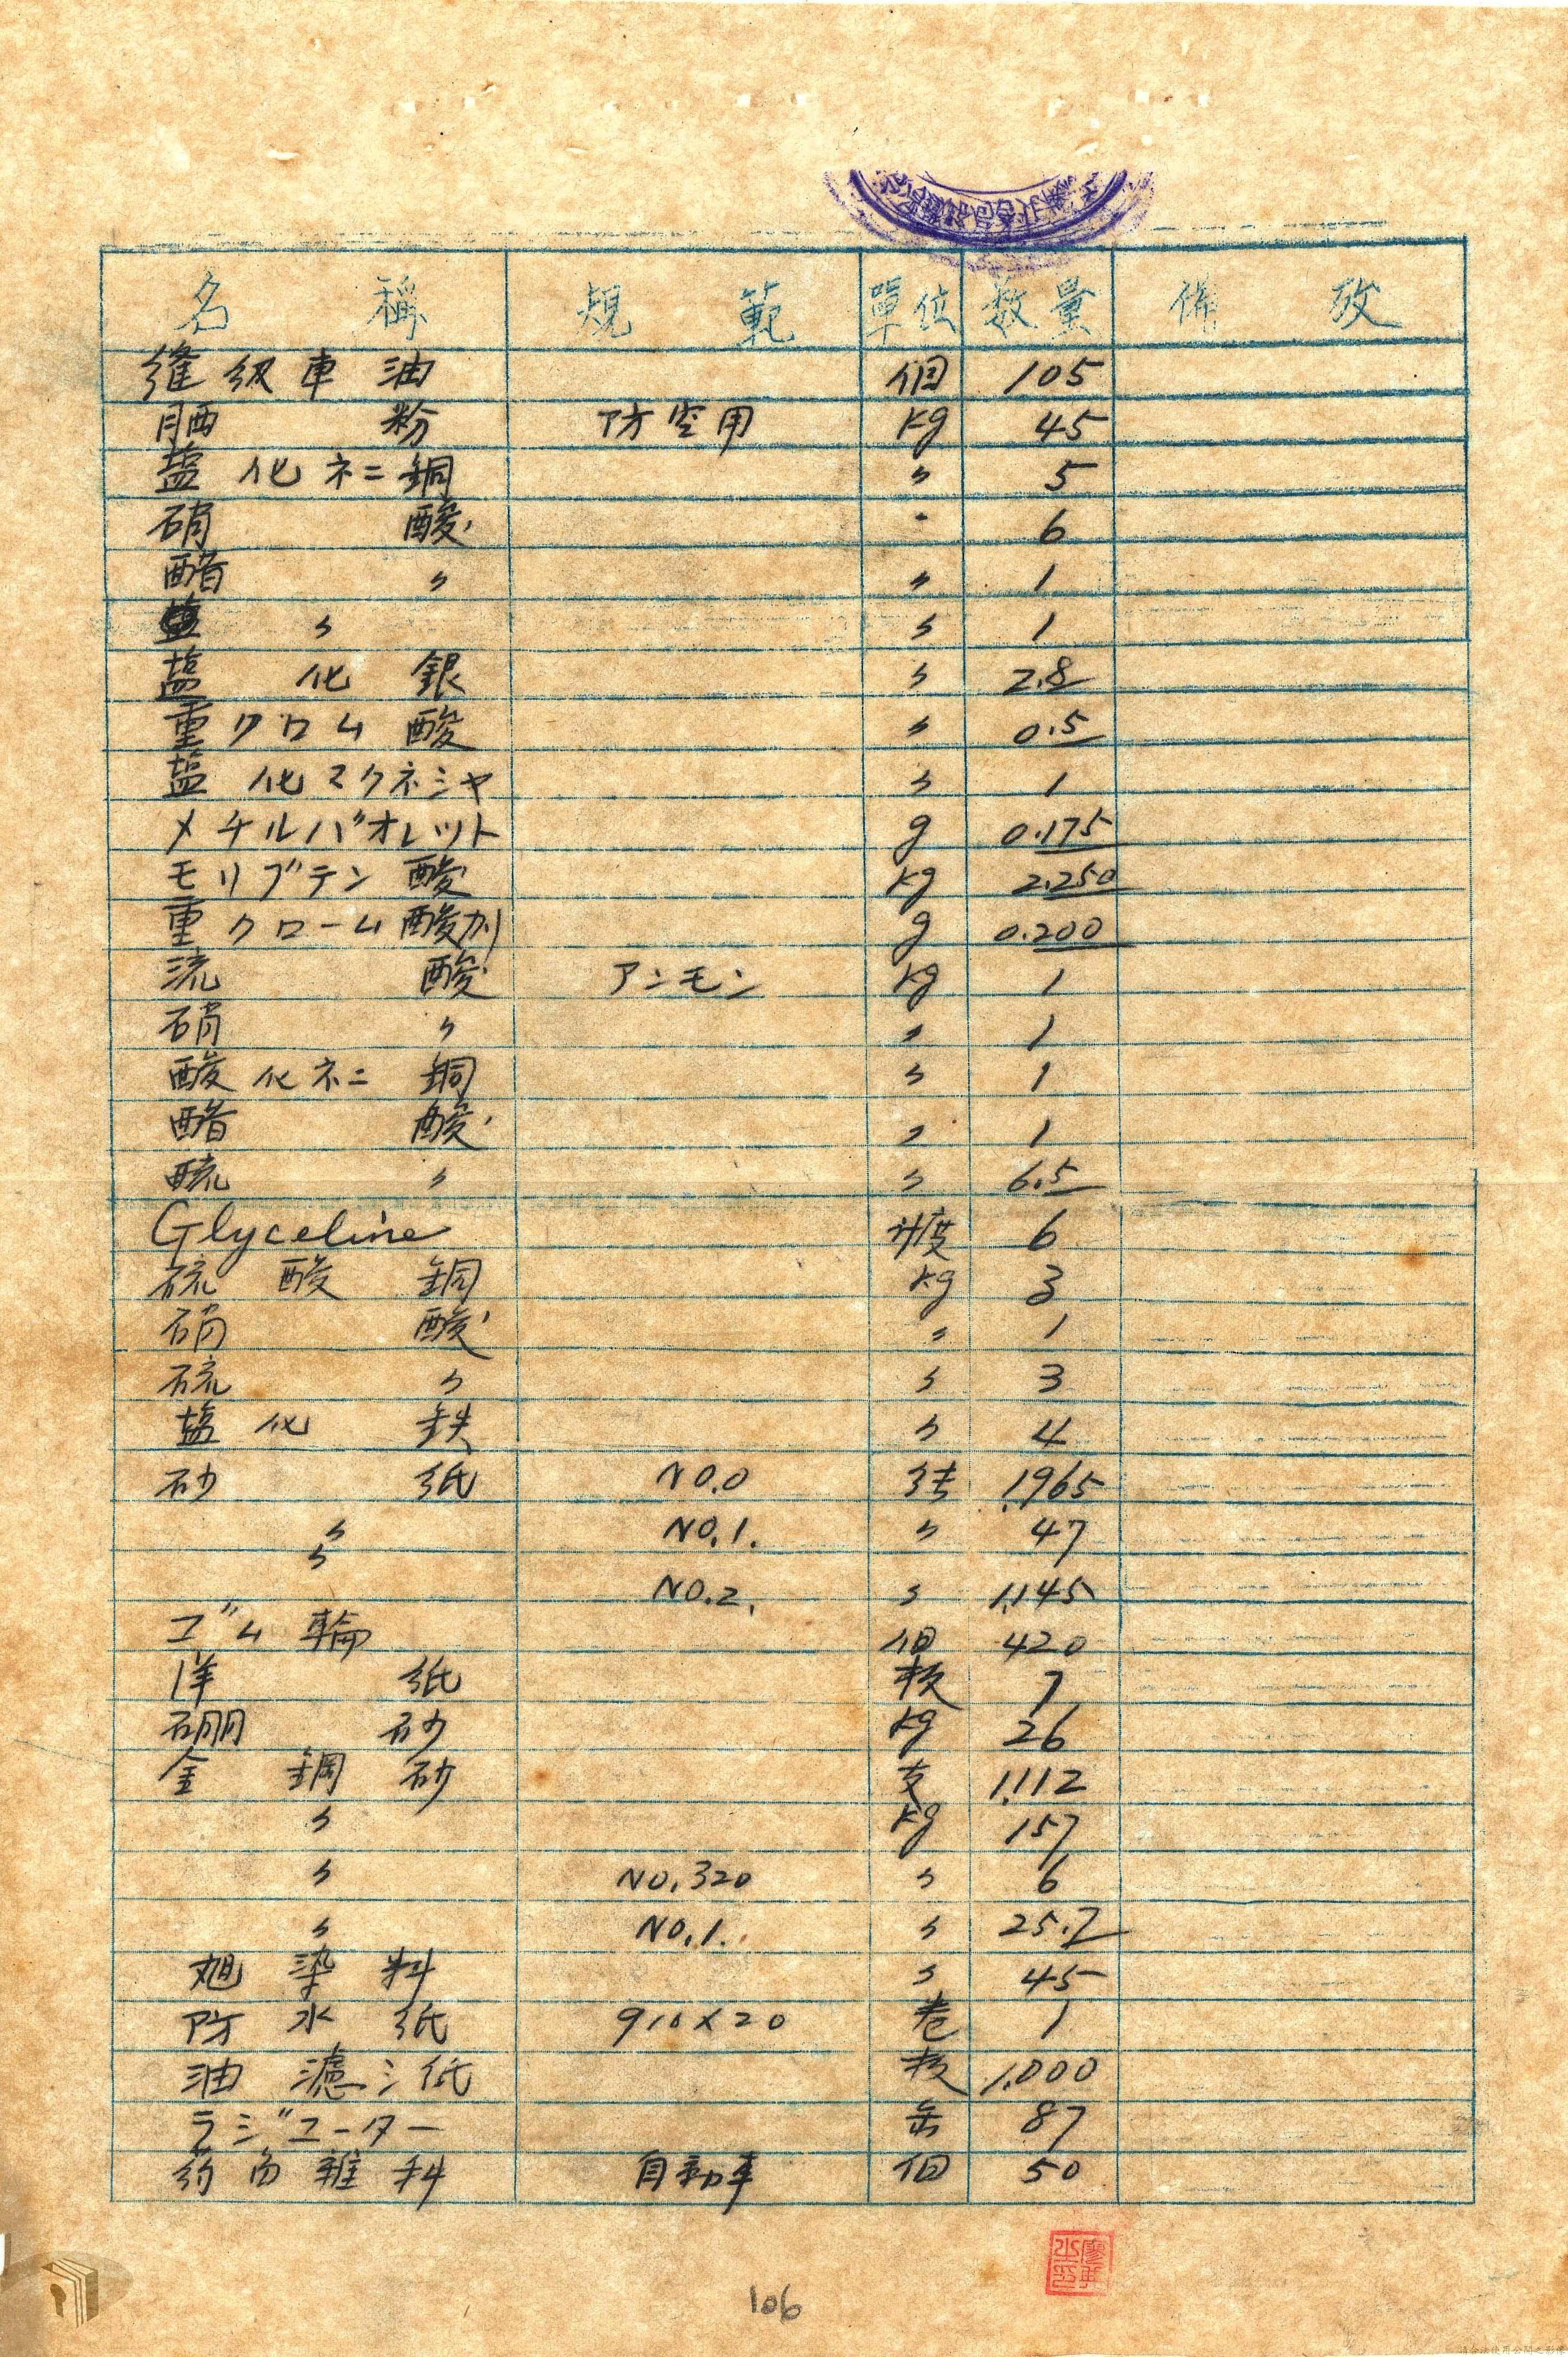 名稱 規範 單位 数量 俻攷
縫級車油 個 105
晒粉 防空用 kg 45
塩化ネニ銅 〃 5
硝酸 〃 6
醋〃 〃 1
塩〃 〃 1
塩化銀 〃 2.8
重クロム酸 〃 0.5
塩化マクネシヤ 〃 1
メチルバオレット g 0.175
モリブテン酸 kg 2.250
重クローム酸加 g 0.200
流酸 アンモン kg 1
硝〃 〃 1
酸化ネニ銅 〃 1
醋酸 〃 1
硫〃 〃 6.5
Glyceline 6
硫酸銅 kg 3
硝酸 〃 1
硫〃 〃 3
塩化鉄 〃 4
砂紙 NO.0 1,965
〃 NO.1. 〃 47
〃 NO.2. 〃 1,145
ゴム輪 個 420
洋紙 枚 7
硼砂 kg 26
金鋼砂 支 1,112
〃 kg 157
〃 NO.320 〃 6
〃 NO.1. 〃 25.7
旭染料 〃 45
防水紙 910×20 巻 1
油濾シ紙 枚 1,000
ラジエーター 缶 87
雜料 自動車 個 50
106